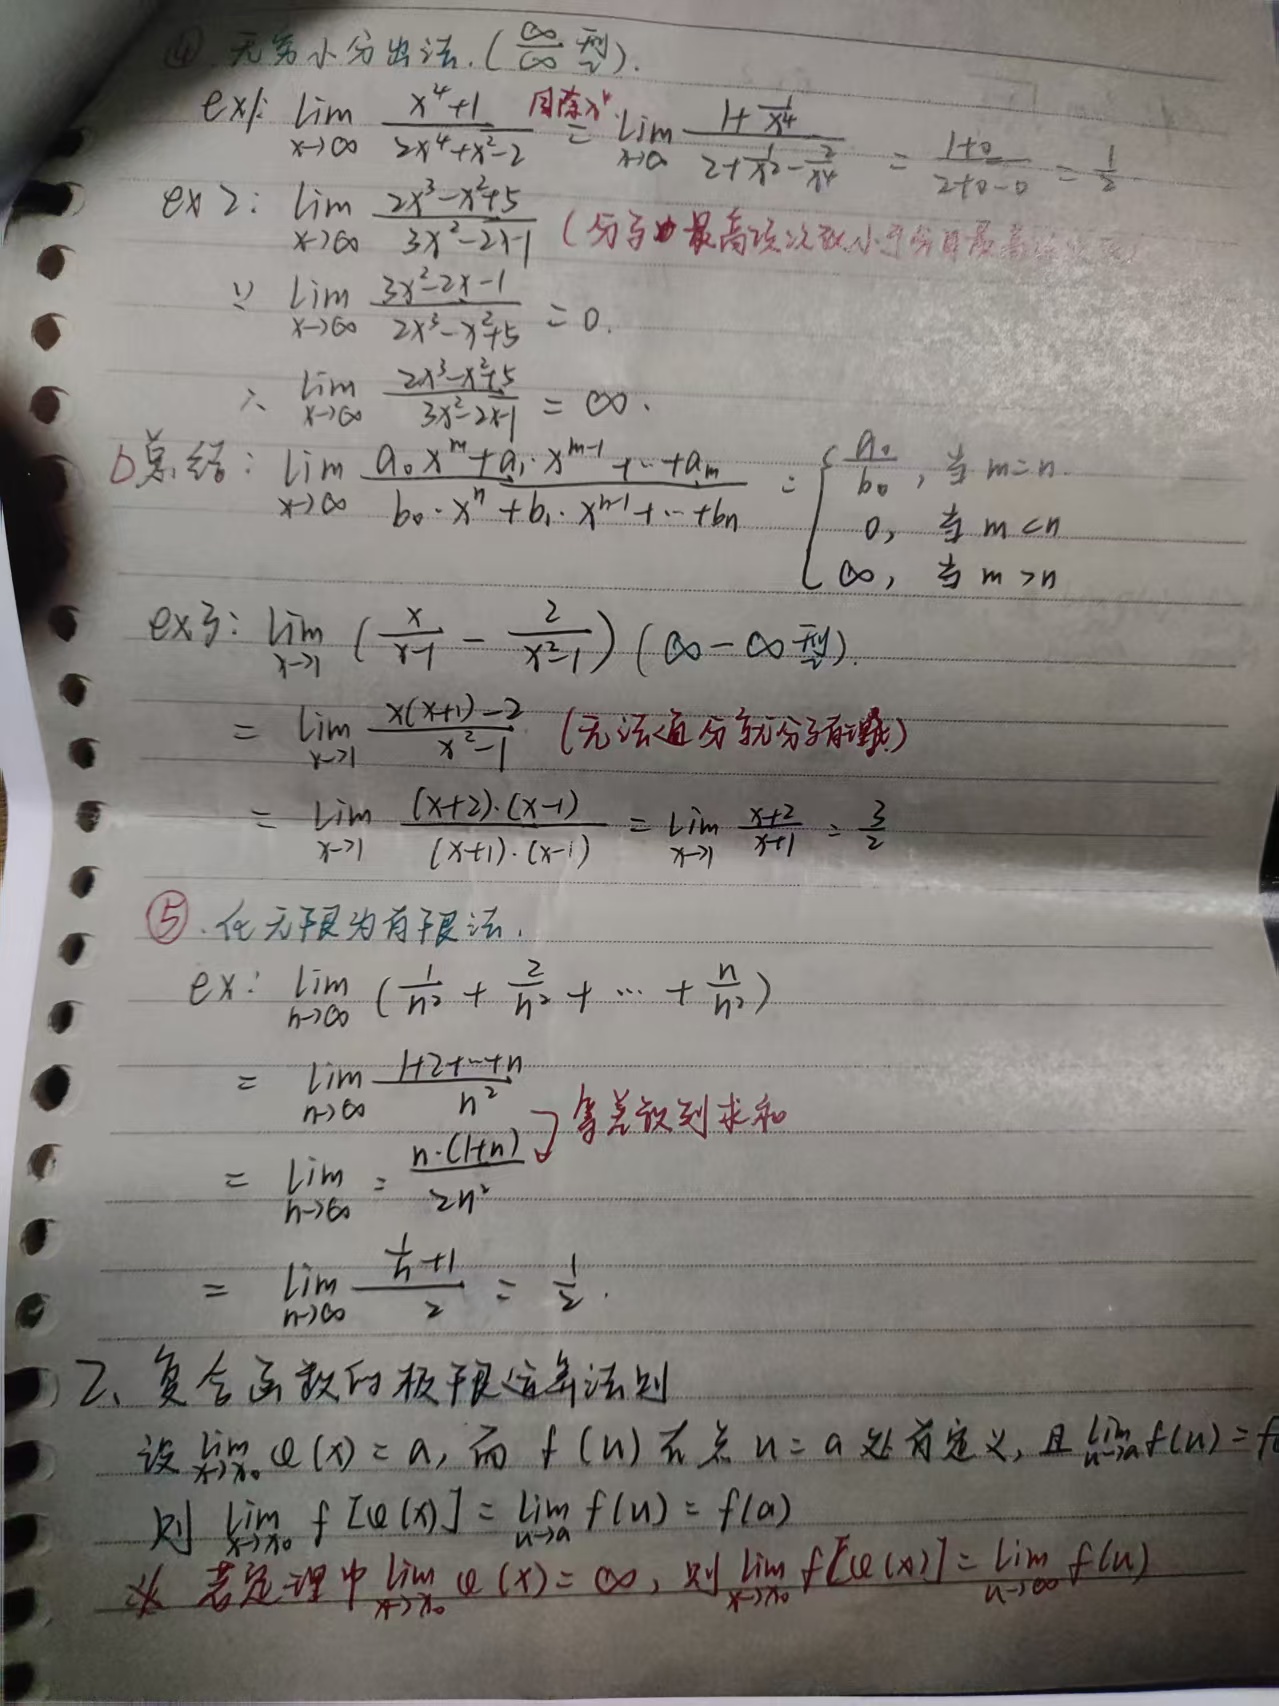 ④ 无穷小分出法.(∞/∞ 型).
ex1: lim x→∞ (x⁴+1)/(2x⁴+x²-2) 同除x⁴ = lim x→∞ (1+1/x⁴)/(2+1/x²-2/x⁴) = (1+0)/(2+0-0) = 1/2
ex2: lim x→∞ (2x³-x²+5)/(3x²-2x-1) (分子中最高项次数小于分母最高项次
∵ lim x→∞ (3x²-2x-1)/(2x³-x²+5) = 0.
∴ lim x→∞ (2x³-x²+5)/(3x²-2x-1) = ∞.
总结: lim x→∞ (a₀x^m+a₁·x^(m-1)+…+a_m)/(b₀·x^n+b₁·x^(n-1)+…+b_n) = { a₀/b₀, 当 m=n.
0, 当 m<n
∞, 当 m>n
ex3: lim x→1 (x/(x-1) - 2/(x²-1)) (∞-∞型).
= lim x→1 (x(x+1)-2)/(x²-1) (无法通分就分子有理化)
= lim x→1 ((x+2)·(x-1))/((x+1)·(x-1)) = lim x→1 (x+2)/(x+1) = 3/2
⑤.化无限为有限法.
ex: lim n→∞ (1/n² + 2/n² + … + n/n²)
= lim n→∞ (1+2+…+n)/n²
等差数列求和
= lim n→∞ = (n·(1+n))/2n²
= lim n→∞ (1/n+1)/2 = 1/2.
2、复合函数的极限运算法则
设 lim x→x₀ φ(x)=a, 而 f(u)在点u=a处有定义, 且 lim u→a f(u)=f
则 lim x→x₀ f[φ(x)] = lim u→a f(u) = f(a)
※ 若定理中 lim x→x₀ φ(x)=∞, 则 lim x→x₀ f[φ(x)] = lim u→∞ f(u)